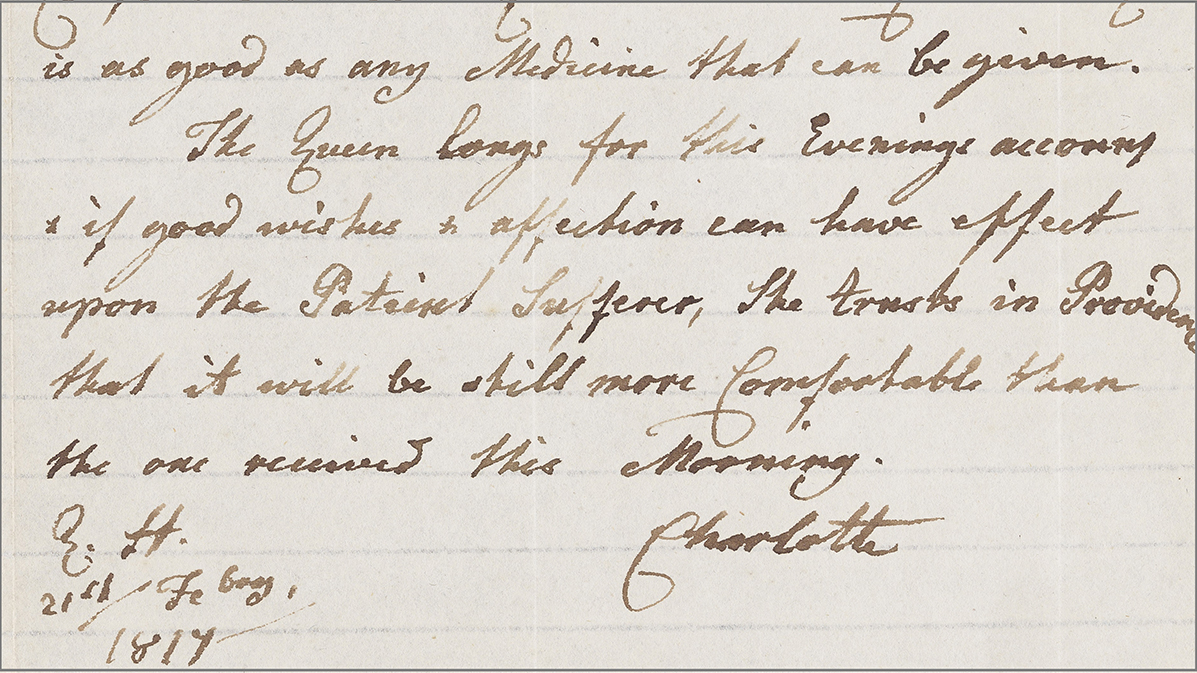 is as good as any Medicine that can be given.
The Queen longs for this Evenings account
& if good wishes & affection can have effect
upon the Patient Sufferer, She trusts in Providence
that it will be still more Comfortable than
the one received this Morning.
Q. H. Charlotte
21st/ Febry,
1817